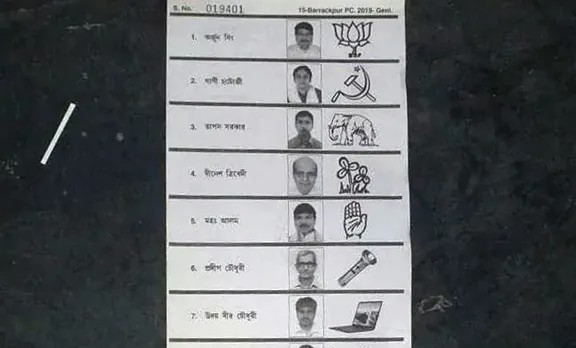 S. No. 019401 15-Barrackpur PC. 2019- Genl.
1. অর্জুন সিং
2. গার্গী চ্যাটার্জী
3. তাপস সরকার
4. দীনেশ ত্রিবেদী
5. মহঃ আলম
6. প্রদীপ চৌধুরী
7. উদয় বীর চৌধুরী